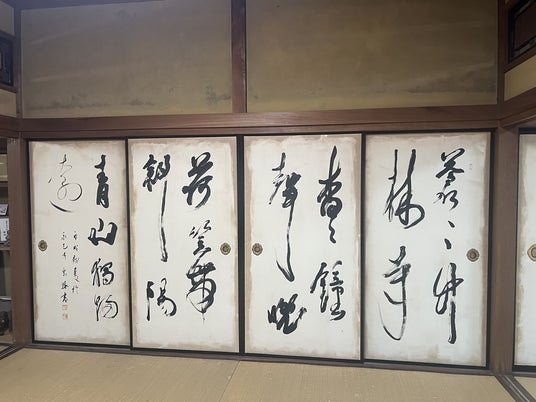 蒼〻竹
林寺
杳〻鐘
聲晚
荷笠帶
斜陽
青山獨歸
遠